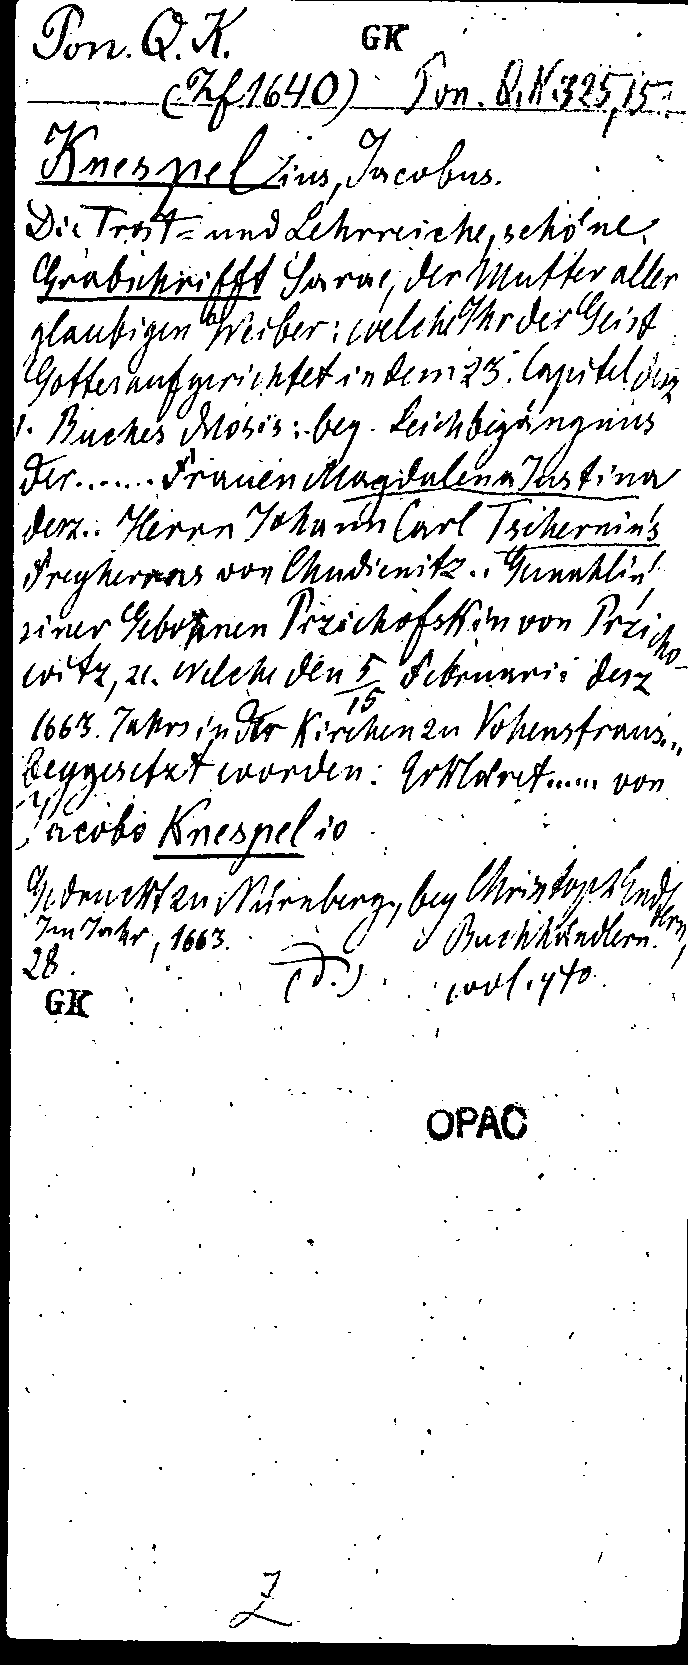 Pon. Q. K. GK
(Zf 1640) Pon. Q. N. 325, 15.
Knespelius, Jacobus.
Die Trost- und Lehrreiche, schöne
Grabschrifft Sarae, der Mutter aller
glaubigen Weiber: welche Ihr der Geist
Gottes aufgerichtet in dem 23. Capitel desz
1. Buches Mosis: bey Leichbegängnüs
der....... Frauen Magdalena Justina
desz.. Herrn Johann Carl Tschernin's
Freyherrns von Chudienitz.. Gemahlin
einer Gebornen Przichofskin von Przicho-
witz, ec. welche den 5/15 Februarii desz
1663. Jahrs in der Kirchen zu Vohenstraus..
beygesetzt worden: Erkläret..... von
Jacobo Knespelio
Gedruckt zu Nürnberg, bey Christoph Endtern,
Im Jahr, 1663. Buchhändlern.
28. (d.)
GK
OPAC
Z